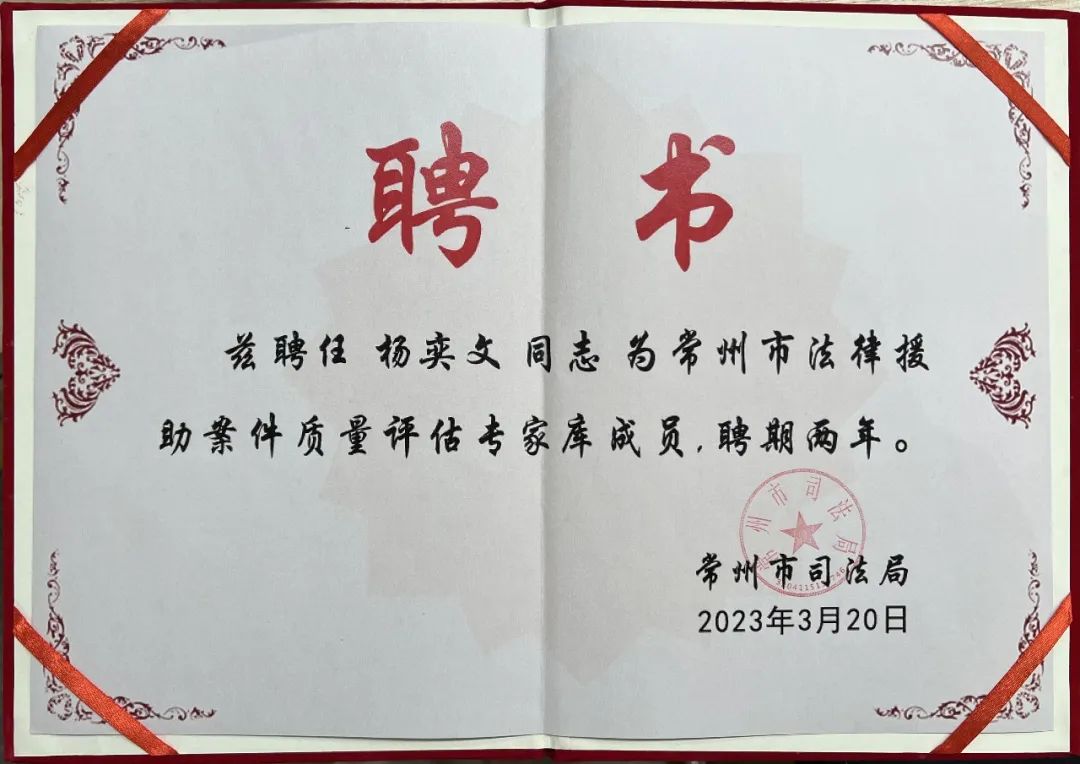 聘 书
兹聘任 杨奕文 同志 为常州市法律援
助案件质量评估专家库成员,聘期两年。
常州市司法局
常州市司法局
2023年3月20日